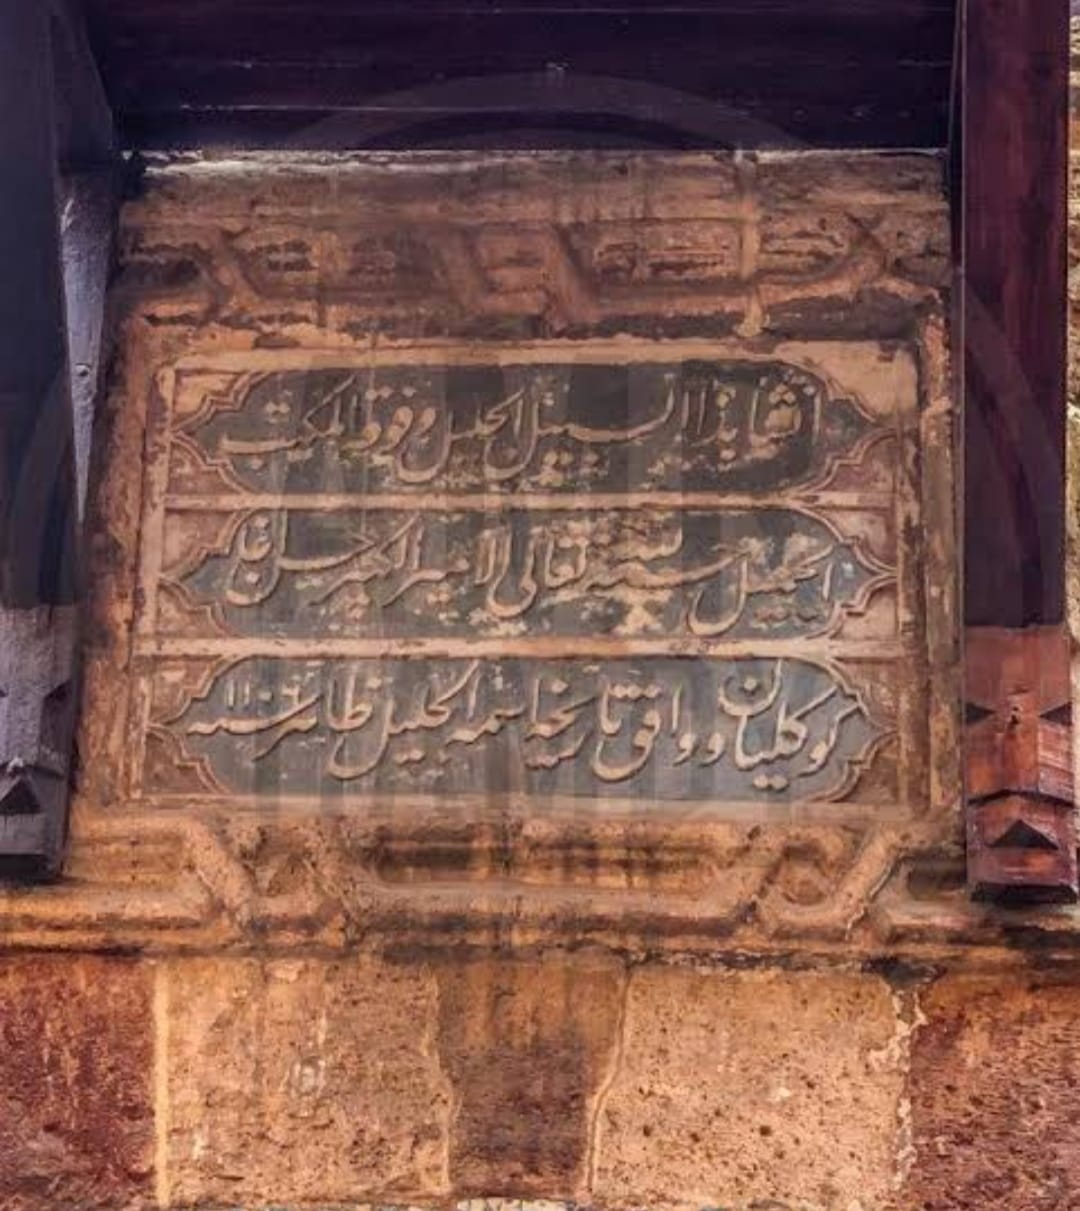 انشا هذا السبيل الجليل وفوقه المكتب
الجميل حسبة لله تعالى الامير الكبير حسن اغا
كوكليان ووافق تاريخه اسمه الجليل طاهر سنه ١١٠٦